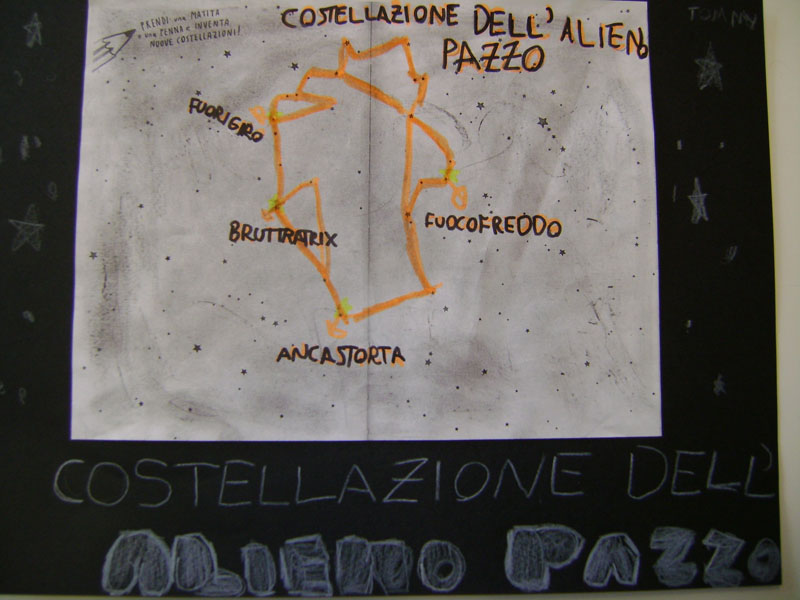 PRENDI una MATITA
o una PENNA e INVENTA
NUOVE COSTELLAZIONI!
COSTELLAZIONE DELL'ALIENO
PAZZO
TOMMY
FUORIGIRO
BRUTTRATRIX
FUOCOFREDDO
ANCASTORTA
COSTELLAZIONE DELL'
ALIENO PAZZO